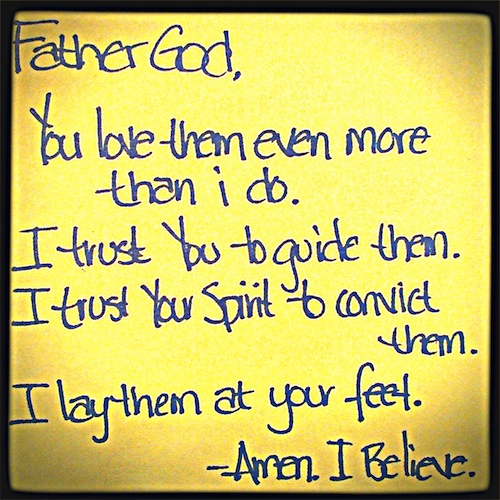 Father God,
You love them even more
than i do.
I trust You to guide them.
I trust Your Spirit to convict
them.
I lay them at your feet.
-Amen. I Believe.